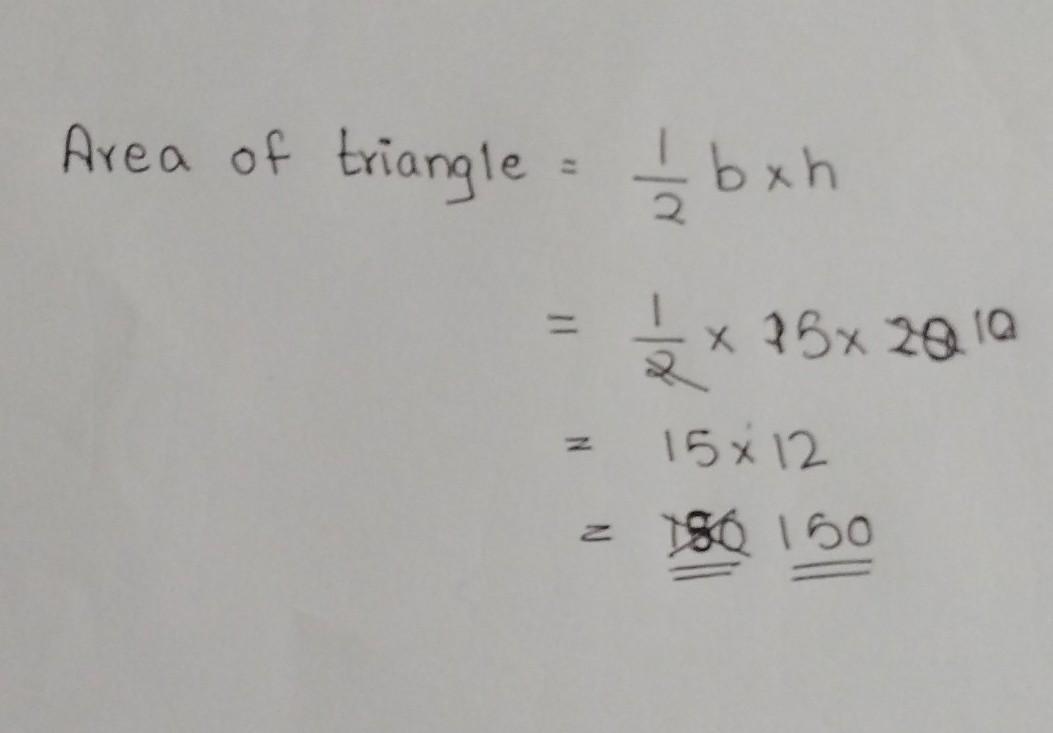 Area of triangle = 1/2 b x h
= 1/2 x 15 x 20 10
= 15 x 12
= 180 150